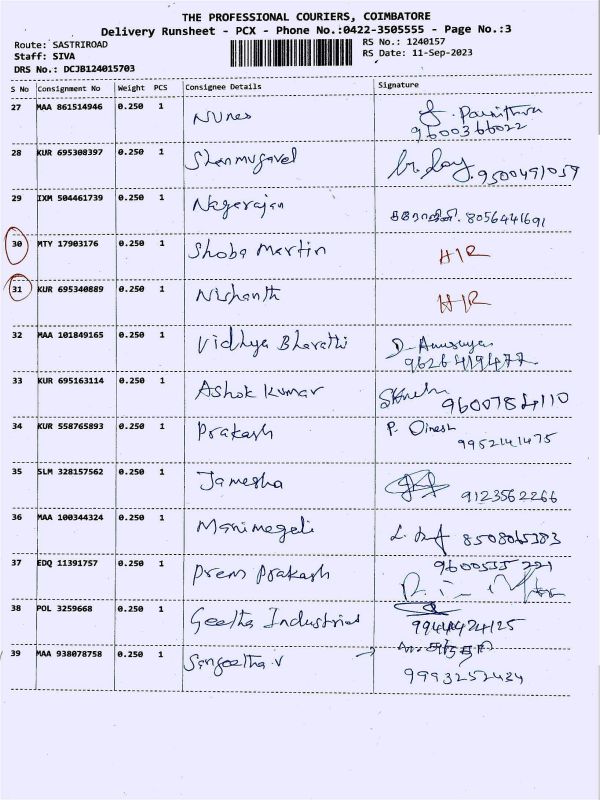 THE PROFESSIONAL COURIERS, COIMBATORE
Delivery Runsheet - PCX - Phone No.:0422-3505555 - Page No.:3
Route: SASTRIROAD
RS No.: 1240157
Staff: SIVA
RS Date: 11-Sep-2023
DRS No.: DCJB124015703
S No Consignment No Weight PCS Consignee Details Signature
27 MAA 861514946 0.250 1 Nunes
9600366022
28 KUR 695308397 0.250 1 Shanmugavel 9500491059
29 IXM 504461739 0.250 1 Nagarajan 8056441691
30 MTY 17903176 0.250 1 Shoba Martin H/R
31 KUR 695340889 0.250 1 Nishanth H/R
32 MAA 101849165 0.250 1 Vidhya Bharathi D. Anusuya
9626419477
33 KUR 695163114 0.250 1 Ashok Kumar 9600784110
34 KUR 558765893 0.250 1 Prakash P. Dinesh
9952141475
35 SLM 328157562 0.250 1 Jamesha 9123562266
36 MAA 100344324 0.250 1 Manimegali 8508065383
37 EDQ 11391757 0.250 1 Prem Prakash 9600535221
38 POL 3259668 0.250 1 Geetha Industries
9944424125
39 MAA 938078758 0.250 1 Sangeetha.V
9993252434